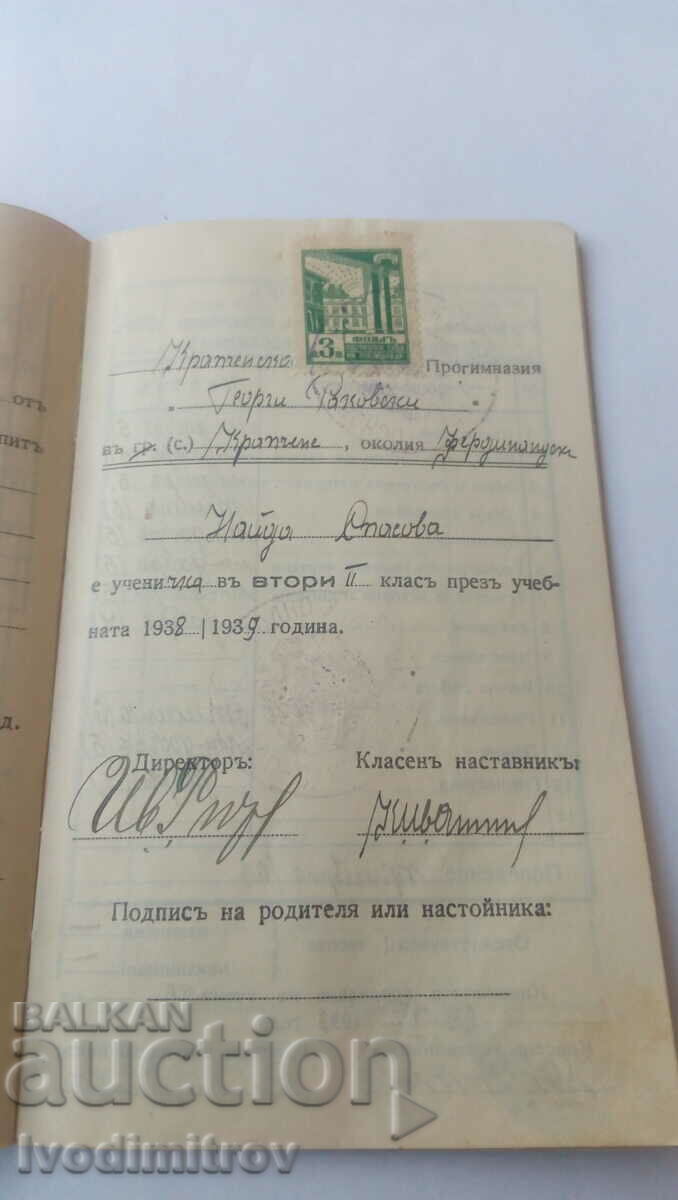 ФОНДЪ
3
Крапченска Прогимназия
„ Георги Раковски
въ гр. (с.) Крапчене, околия Фердинандска
Найда Спасова
е ученичка въ ВТОРИ II класъ презъ учеб-
ната 1938 | 1939 година.
Директоръ: Класенъ наставникъ:
Подписъ на родителя или настойника:
отъ
питъ
д.
BALKAN
auction
Ivodimitrov